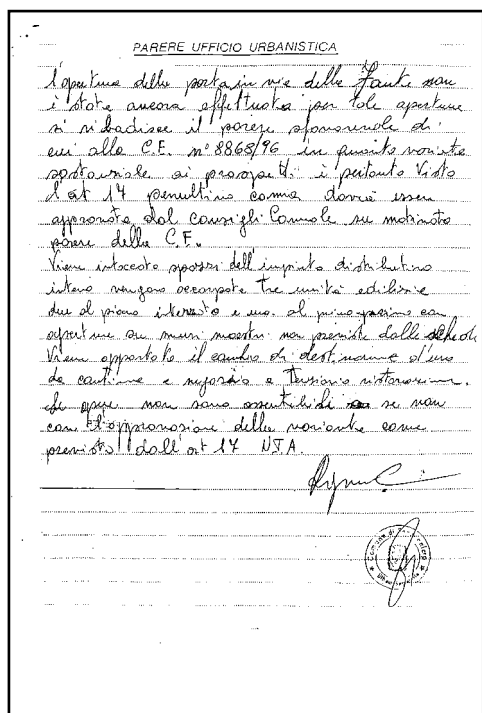 PARERE UFFICIO URBANISTICA
l'apertura della porta in via delle Fante non
è stata ancora effettuata per tale apertura
si ribadisce il parere sfavorevole di
cui alla C.E. n° 8868/96 in quanto variante
sostanziale ai prospetti è pertanto Visto
l'art 17 penultimo comma dovrà essere
approvata dal Consiglio Comunale su motivato
parere della C.E.
Viene intaccato spazi dell'impianto distributivo
interno vengono accorpate tre unità edilizie
due al piano interrato e una al piano primo con
aperture su muri maestri non previste dalle schede
Viene apportato il cambio di destinazione d'uso
da cantina e negozio a ristorazione.
le opere non sono assentibili se non
con l'approvazione della variante come
previsto dall'art 17 NTA.
Comune di